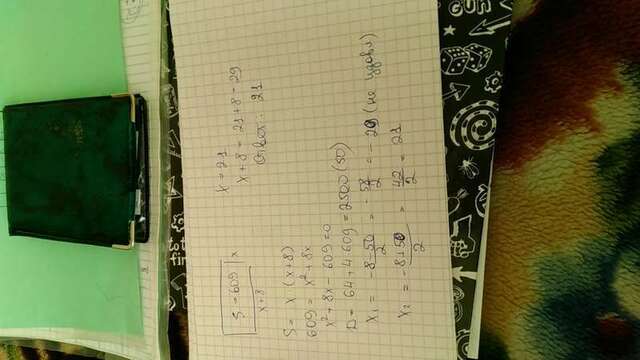 S = 609 x
x+8
S = x (x+8)
609 = x² + 8x
x² + 8x - 609 = 0
D = 64 + 4·609 = 2500 (50)
x₁ = -8-50/2 = -58/2 = -29 (не удовл)
x₂ = -8+50/2 = 42/2 = 21
x = 21
x+8 = 21+8 = 29
Ответ: 21